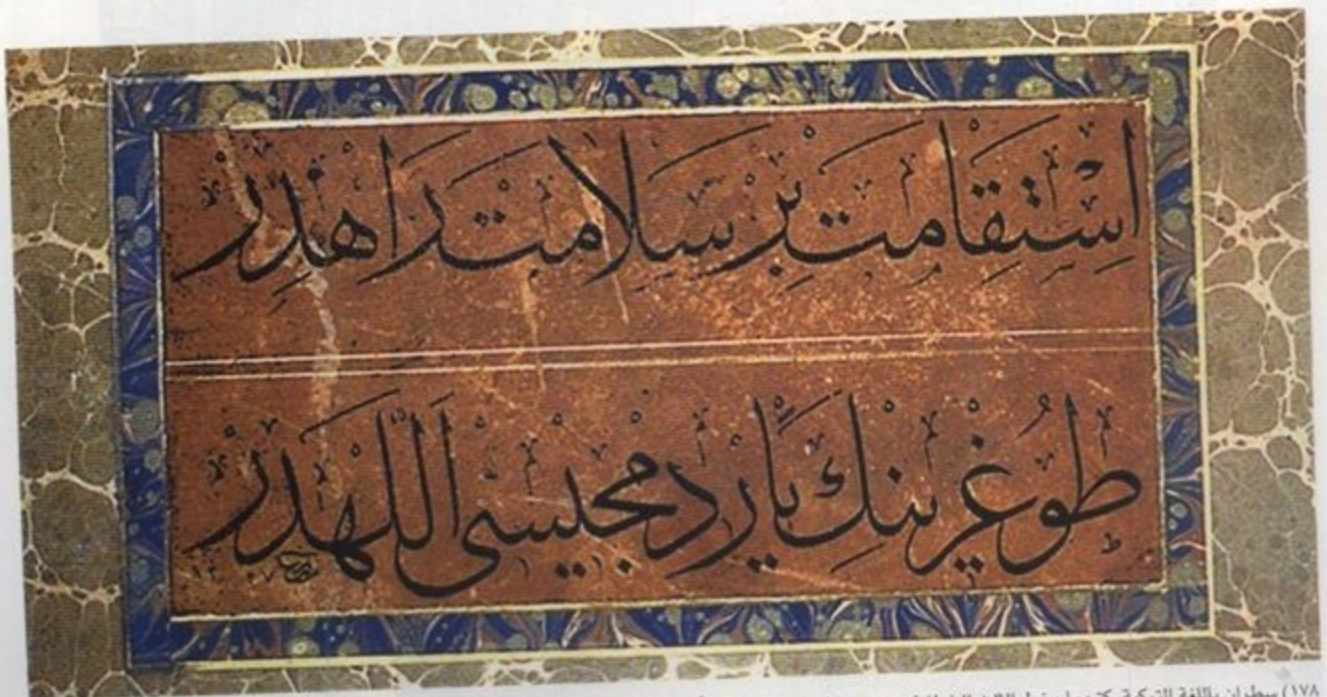 اِسْتِقَامَتْ بِرْ سَلَامَتْ رَاهِدِرْ
طُوغْرِينِكْ يَارْدِمْجِيسِى اَللّٰهْدِرْ
١٧٨) سطران باللغة التركية